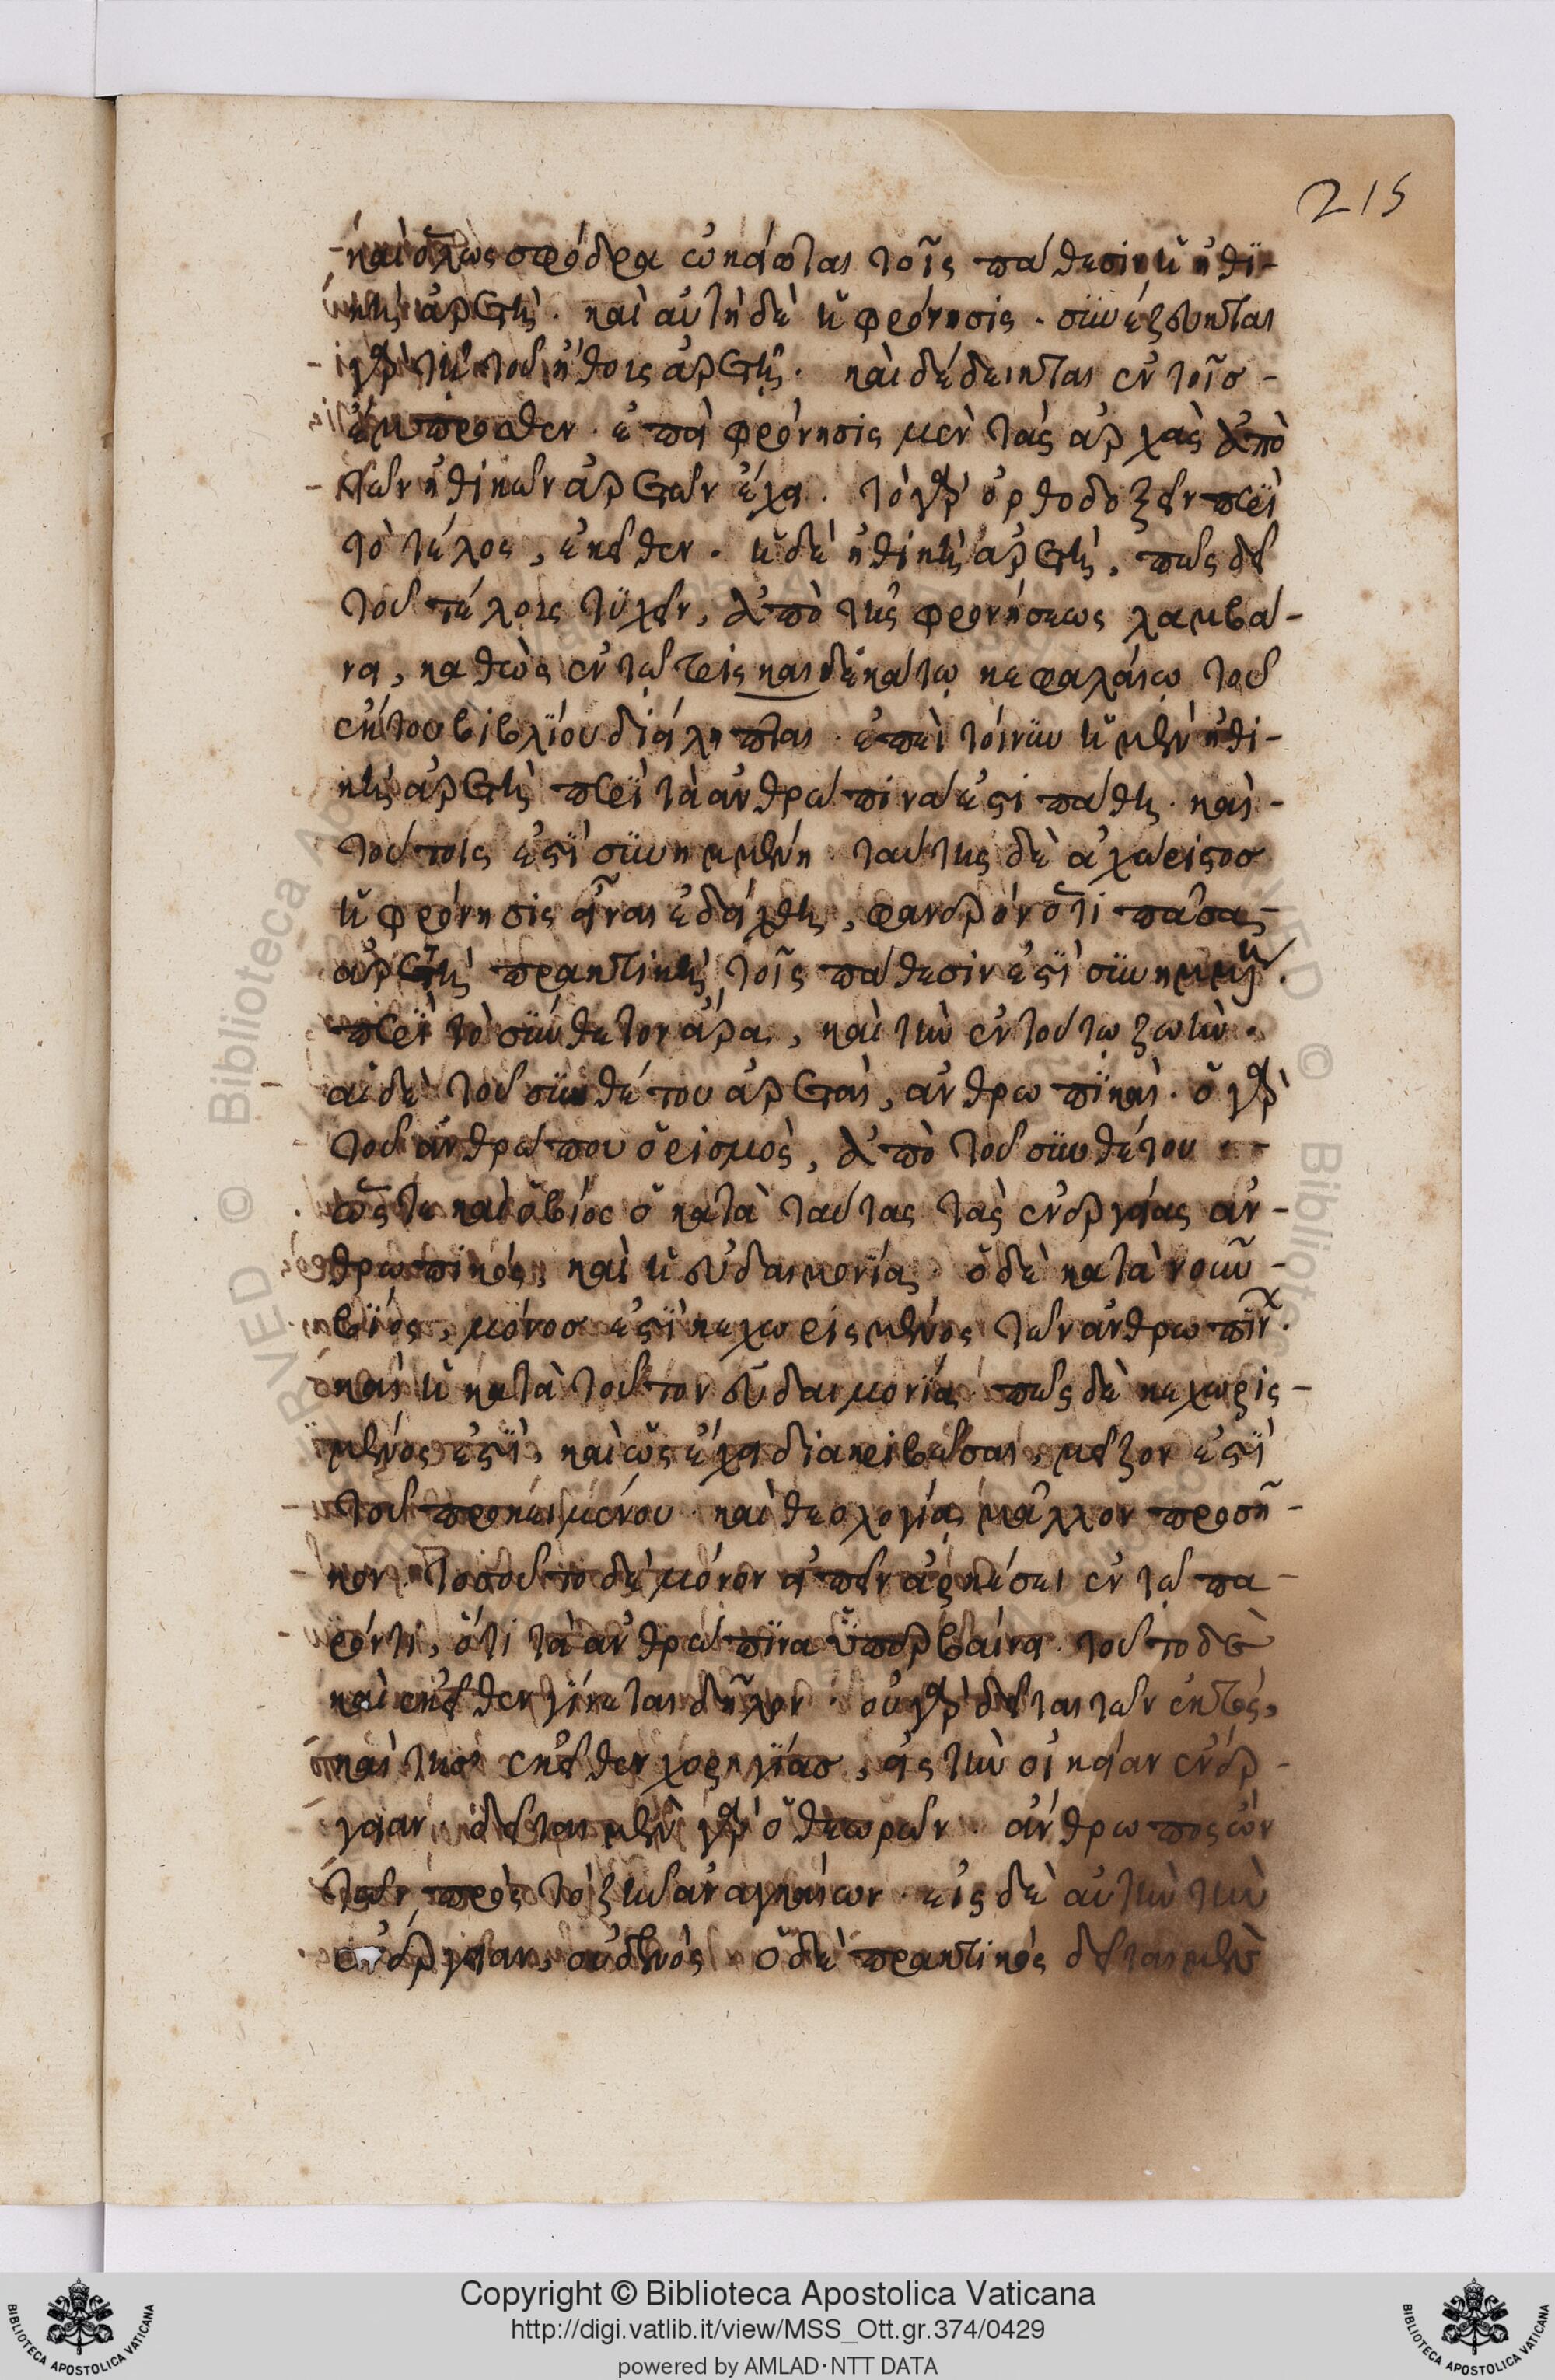 215
καὶ ὅλως σφόδρα ὠκείωται τοῖς πάθεσιν ἡ ἠθϊ-
κὴ ἀρετή. καὶ αὐτὴ δὲ ἡ φρόνησις. συνέζευκται
γὰρ τῇ τοῦ ἤθους ἀρετῇ. καὶ δέδεικται ἐν τοῖσ-
ἔμπροσθεν. ἐπεὶ φρόνησις μὲν τὰς ἀρχὰς ἀπὸ
τῶν ἠθικῶν ἀρετῶν ἔχει. τὸ γὰρ ὀρθοδοξεῖν περὶ
τὸ τέλος, ἐκεῖθεν. ἡ δὲ ἠθικὴ ἀρετή, πῶς δεῖ
τοῦ τέλους τυχεῖν, ἀπὸ τῆς φρονήσεως λαμβά-
νει, καθὼς ἐν τῷ τρὶς καιδεκάτῳ κεφαλαίῳ τοῦ
ἕκτου βιβλίου διείληπται. ἐπεὶ τοίνυν ἡ μὲν ἠθι-
κὴ ἀρετὴ περὶ τὰ ἀνθρώπινα ἐστι πάθη. καὶ-
τούτοις ἐστὶ συνημμένη. ταύτης δὲ ἀχώριστοσ
ἡ φρόνησις εἶναι ἐδείχθη, φανερὸν ὅτι πᾶσα-
ἀρετὴ πρακτικὴ τοῖς πάθεσιν ἐστὶ συνημμένη.
περὶ τὸ σύνθετον ἄρα, καὶ τὴν ἐν τούτῳ ζωήν.
αἱ δὲ τοῦ συνθέτου ἀρεταὶ, ἀνθρωπϊκαὶ. ὁ γὰρ
τοῦ ἀνθρώπου ὁρισμὸς, ἀπὸ τοῦ συνθέτου
ὥστε καὶ ὁ βίος ὁ κατὰ ταύτας τὰς ἐνεργείας ἀν-
θρωπικός, καὶ ἡ εὐδαιμονία. ὁ δὲ κατὰ νοῦν-
βίος, μόνοσ ἐστὶ κεχωρισμένος τῶν ἀνθρωπίνων.
καὶ ἡ κατὰ τοῦτον εὐδαιμονία. πῶς δὲ κεχωρις-
μένος ἐστὶ, καὶ ὡς ἔχει διακριβῶσαι, μεῖζον ἐστὶ
τοῦ προκειμένου. καὶ θεολογίας μᾶλλον προσῆ-
κον. τοσοῦτο δὲ μόνον εἰπεῖν ἀρκέσει ἐν τῷ πα-
ρόντι, ὅτι τὰ ἀνθρώπινα ὑπερβαίνει. τοῦτο δὲ
καὶ ἐκεῖθεν γίνεται δῆλον. οὐ γὰρ δεῖται τῶν ἐκτὸς,
καὶ τῆσ ἐκεῖθεν χορηγίασ, εἰς τὴν οἰκείαν ἐνέρ-
γειαν. δεῖται μὲν γὰρ ὁ θεωρῶν. ἄνθρωπος ὢν
τῶν πρὸς τὸ ζῆν ἀναγκαίων. εἰς δὲ αὐτὴν τὴν
ἐνέργειαν, οὐδενός. ὁ δὲ πρακτικὸς δεῖται μὲν
Copyright © Biblioteca Apostolica Vaticana
http://digi.vatlib.it/view/MSS_Ott.gr.374/0429
powered by AMLAD·NTT DATA